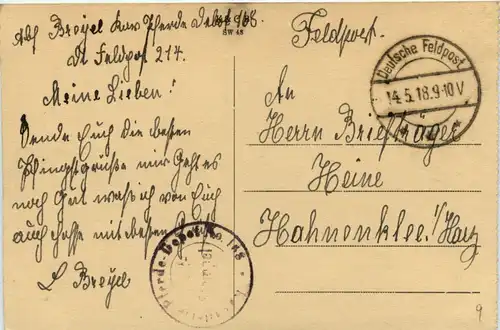 Abs Breyel Kav Pferde Depot 168.
Dt Feldpost 214.
Meine Lieben!
Sende Euch die besten
Pfingstgrüße mir Geht es
noch Gut was ich von Euch
auch hoffe mit besten
L Breyel
SW 48
Feldpost.
Deutsche Feldpost
14.5.18.9-10V
An
Herrn Briefträger
Heine
Hahnenklee i/Harz
Pferde-Depot No. 168
9